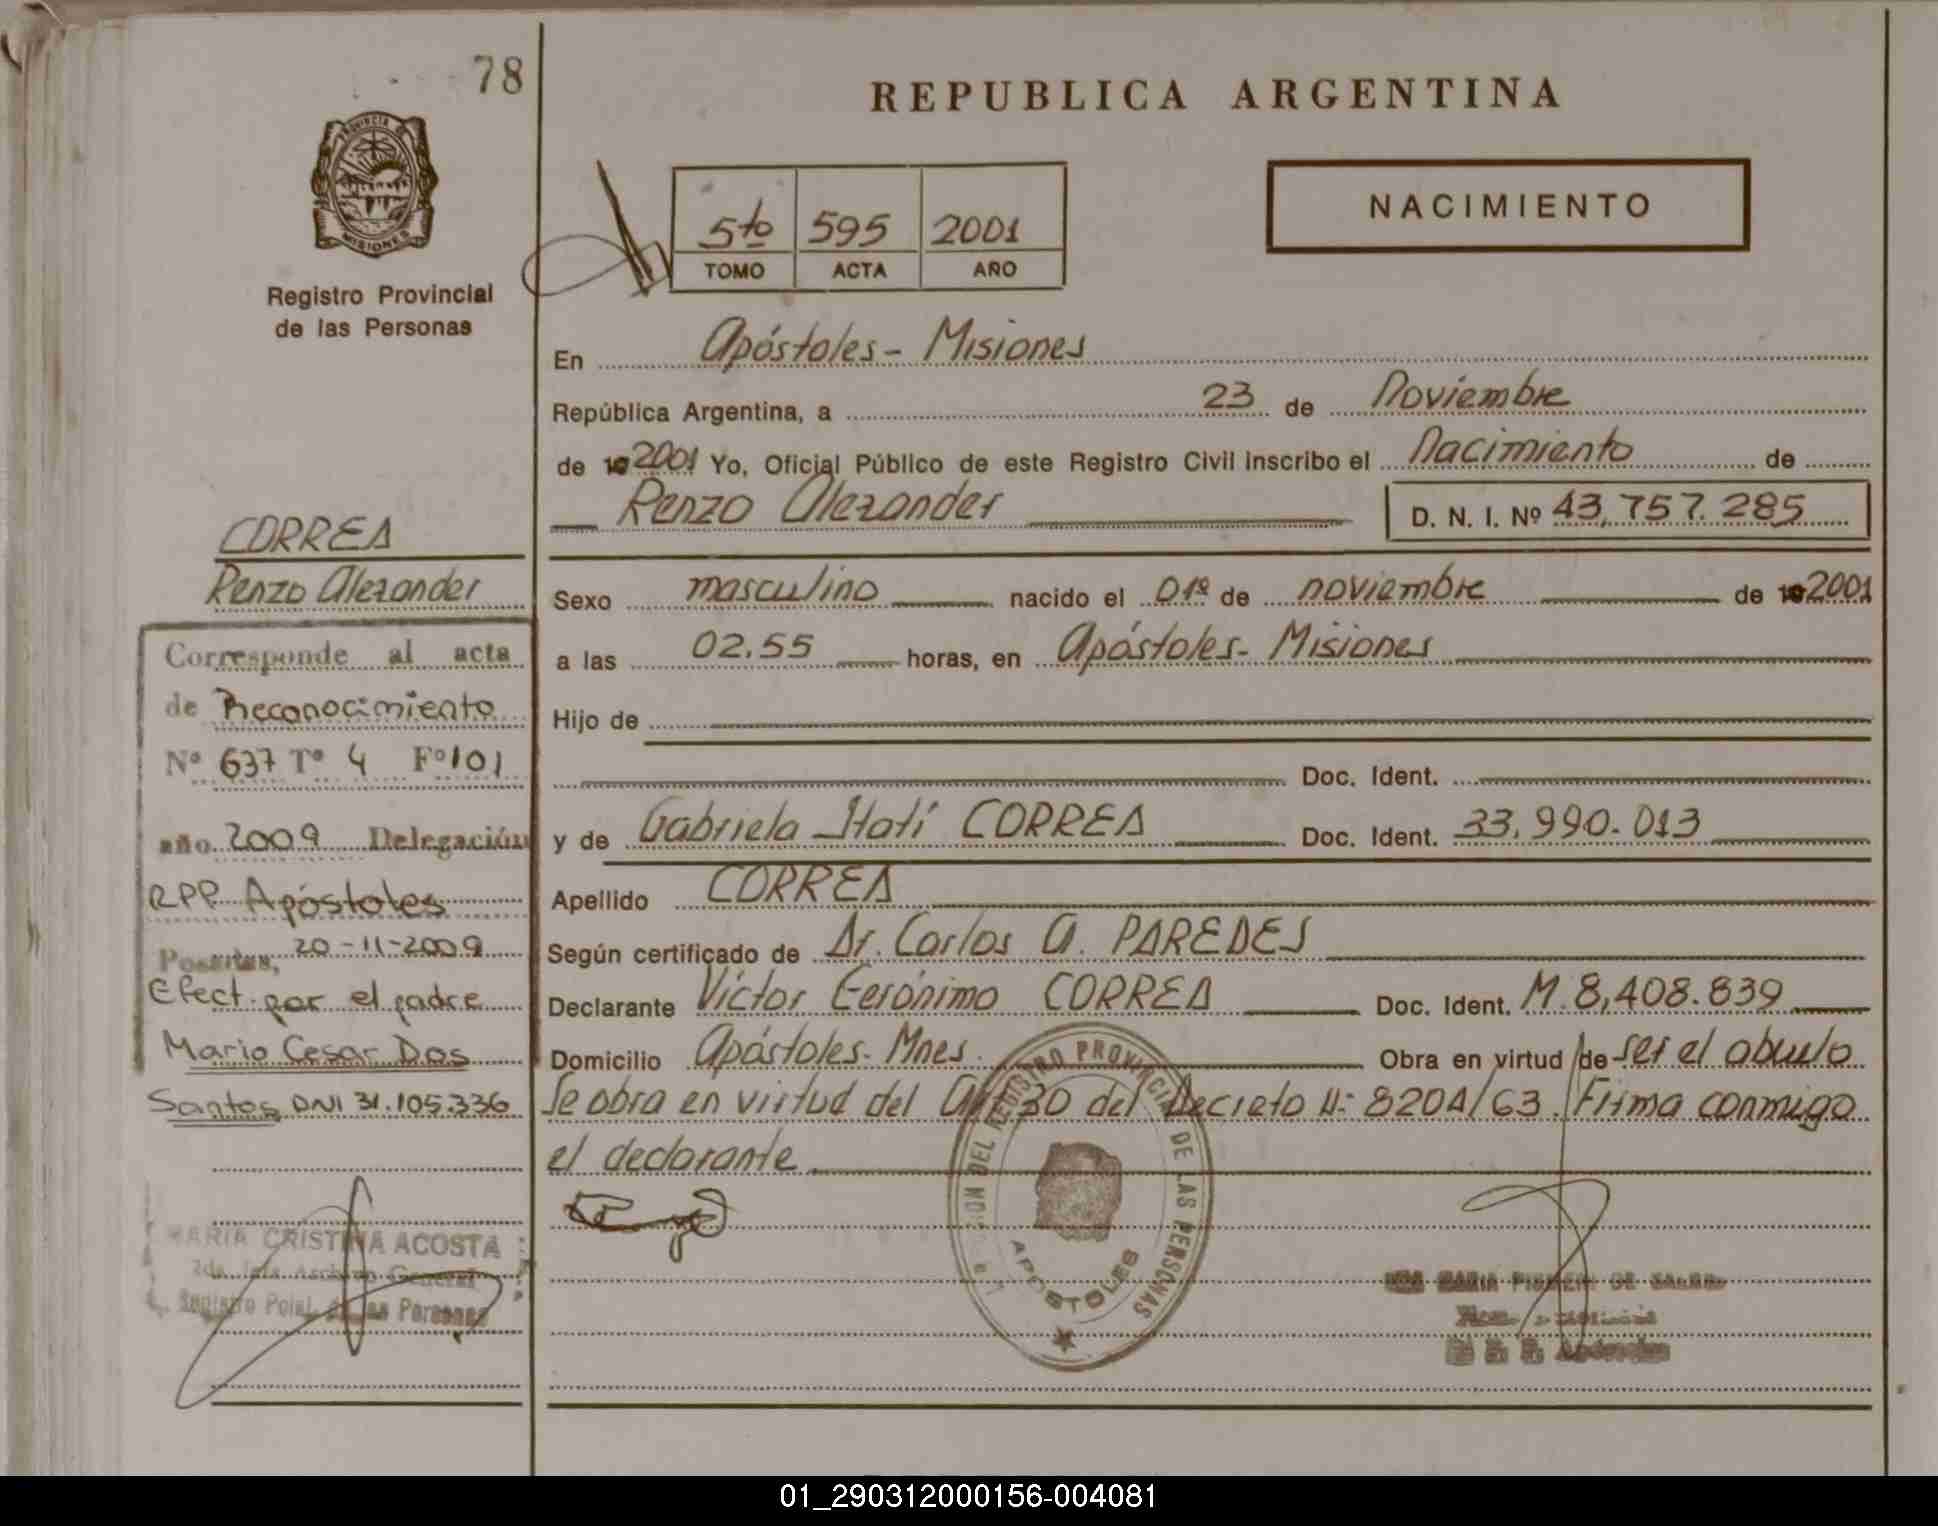 78
PROVINCIA DE
MISIONES
Registro Provincial
de las Personas
REPUBLICA ARGENTINA
5to 595 2001
TOMO ACTA AÑO
NACIMIENTO
En Apóstoles - Misiones
República Argentina, a 23 de Noviembre
de 2001 Yo, Oficial Público de este Registro Civil inscribo el Nacimiento de
Renzo Alexander D. N. I. Nº 43,757.285
Sexo masculino nacido el 01º de noviembre de 2001
a las 02.55 horas, en Apóstoles- Misiones
Hijo de
Doc. Ident.
y de Gabriela Itatí CORREA Doc. Ident. 33.990.013
Apellido CORREA
Según certificado de Dr. Carlos A. PAREDES
Declarante Víctor Gerónimo CORREA Doc. Ident. M. 8,408.839
Domicilio Apóstoles- Mnes. Obra en virtud de ser el abuelo
Se obra en virtud del Art 30 del Decreto Nº 8204/63. Firma conmigo
el declarante
CORREA
Renzo Alexander
Corresponde al acta
de Reconocimiento
Nº 637 Tº 4 Fº 101
año 2009 Delegación
RPP. Apóstoles
Posadas, 20-11-2009
Efect. por el padre
Mario Cesar Dos
Santos DNI 31.105.336
MARIA CRISTINA ACOSTA
Archivo General
Registro Pcial. de las Personas
DEL REGISTRO PROVINCIAL DE LAS PERSONAS
APOSTOLES
MARIA
DE
01_290312000156-004081